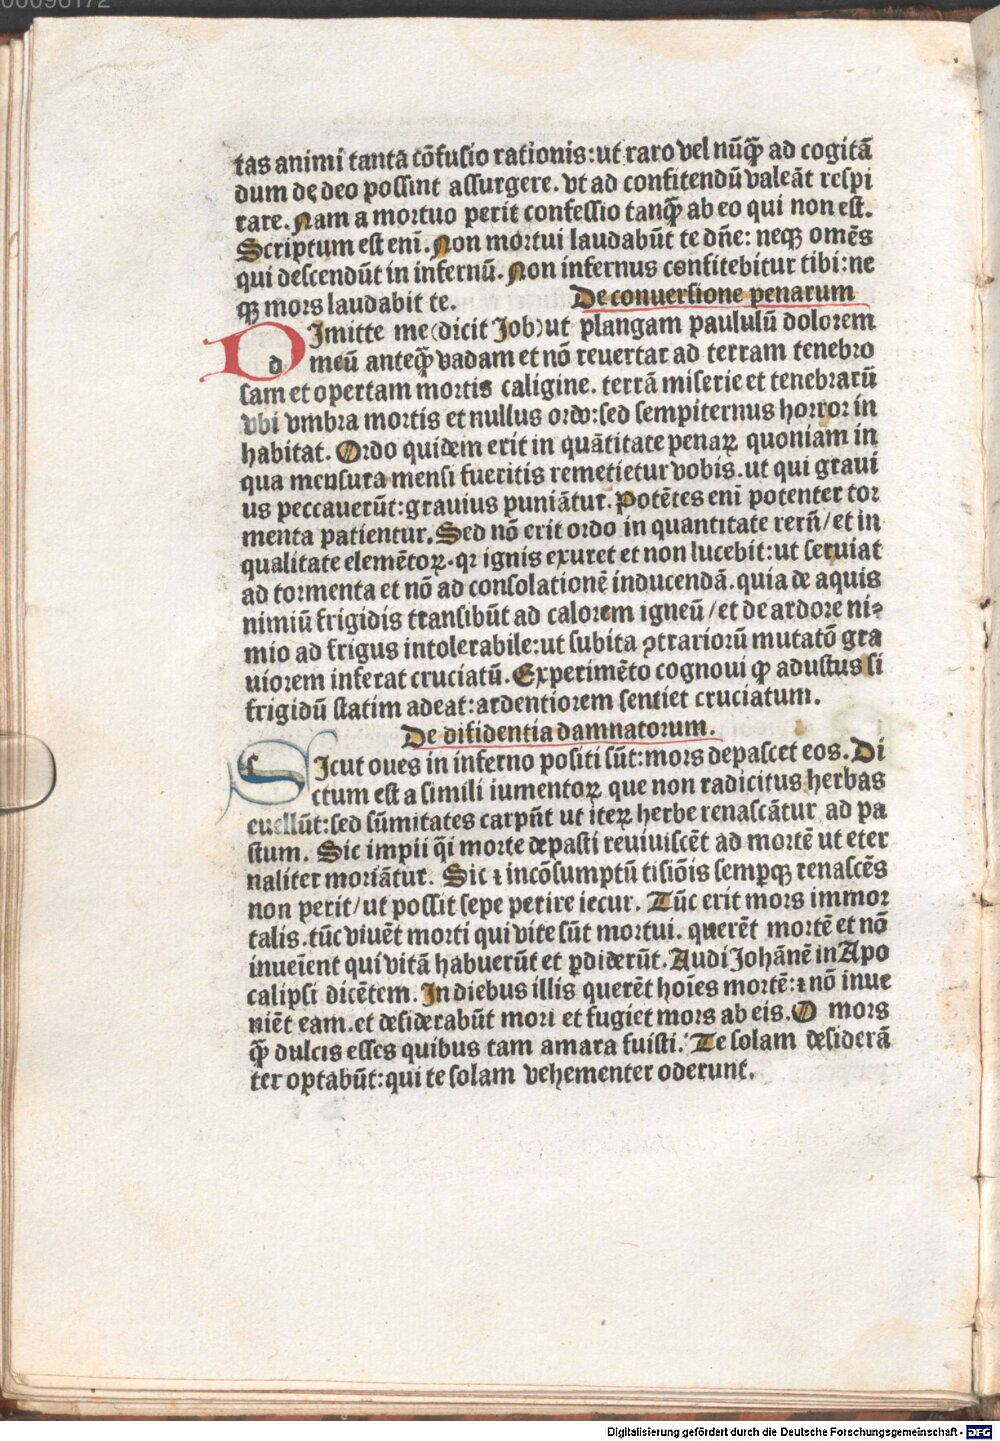 00096172
tas animi tanta cõfusio rationis:ut raro vel nũꝙ̃ ad cogitã
dum de deo possint assurgere. vt ad confitendũ valeãt respi
rare. Nam a mortuo perit confessio tanꝙ̃ ab eo qui non est.
Scriptum est eni̅. Non mortui laudabũt te dñe: neqꝫ omẽs
qui descendũt in infernũ. Non infernus confitebitur tibi:ne
qꝫ mors laudabit te. De conuersione penarum
DImitte me (dicit Job) ut plangam paululũ dolorem
d meũ anteꝙ̃ vadam et nõ reuertar ad terram tenebro
sam et opertam mortis caligine. terrã miserie et tenebrarũ
vbi vmbra mortis et nullus ordo:sed sempiternus horror in
habitat. Ordo quidem erit in quãtitate penaꝝ quoniam in
qua mensura mensi fueritis remetietur vobis. ut qui graui
us peccauerũt:grauius puniãtur. Potẽtes eni̅ potenter tor
menta patientur. Sed nõ erit ordo in quantitate rerũ/et in
qualitate elemẽtoꝝ. qꝛ ignis exuret et non lucebit:ut seruiat
ad tormenta et nõ ad consolationẽ inducendã. quia de aquis
nimiũ frigidis transibũt ad calorem igneũ/et de ardore ni⸗
mio ad frigus intolerabile:ut subita ꝯtrariorũ mutatõ gra
uiorem inferat cruciatũ. Experimẽto cognoui ꝙ adustus si
frigidũ statim adeat:ardentiorem sentiet cruciatum.
De difidentia damnatorum.
SIcut oues in inferno positi sũt:mors depascet eos. Di
ctum est a simili iumentoꝝ que non radicitus herbas
euellũt:sed sũmitates carpũt ut iteꝝ herbe renascãtur ad pa
stum. Sic impii q̃i morte depasti reuiuiscẽt ad mortẽ ut eter
naliter moriãtur. Sic ⁊ incõsumptũ tisiõis sempꝙ renascẽs
non perit/ut possit sepe perire iecur. Tũc erit mors immor
talis. tũc viuẽt morti qui vite sũt mortui. querẽt mortẽ et nõ
inuei̅ent qui vitã habuerũt et ꝑdiderũt. Audi Johãnẽ in Apo
calipsi dicẽtem. In diebus illis querẽt hoi̅es mortẽ:⁊ nõ inue
niẽt eam. et desiderabũt mori et fugiet mors ab eis. O mors
ꝙ̃ dulcis esses quibus tam amara fuisti. Te solam desiderã
ter optabũt:qui te solam vehementer oderunt.
Digitalisierung gefördert durch die Deutsche Forschungsgemeinschaft - DFG